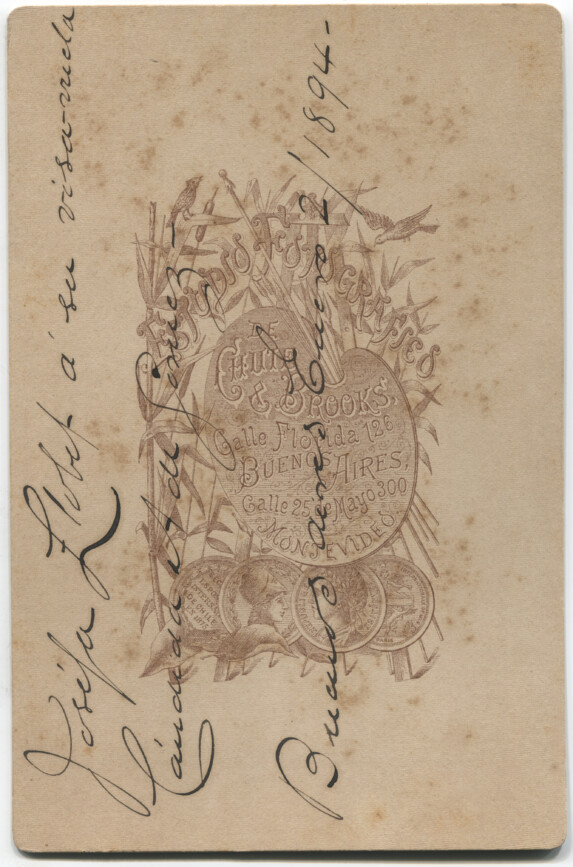 Joséfa Llobet á su visa-nuela
Cándida
de Gomez -
Buenos aires Enero 2/1894-
Estudios Fotográficos
DE
CHUTE
& BROOKS,
Calle Florida 126
BUENOS AIRES,
Calle 25 de Mayo 300
MONTEVIDEO